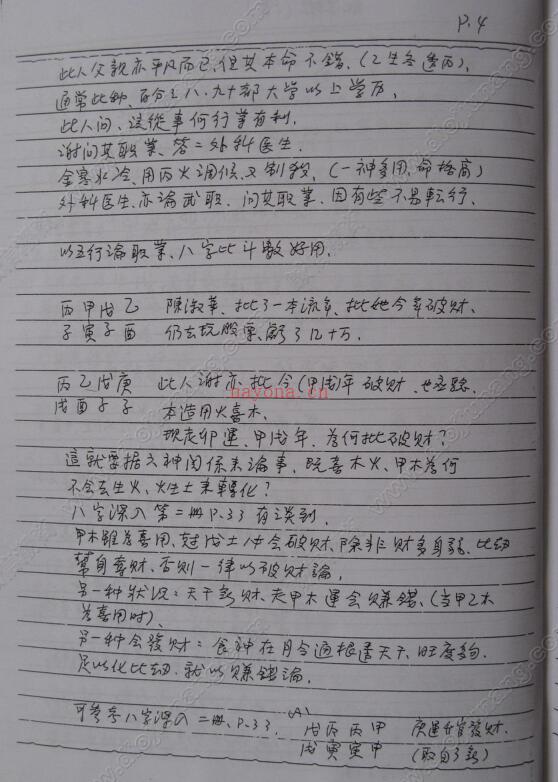 P.4
此人父親亦平凡而已,但其本命不錯、(乙生冬透丙)、
通常此種、百分之八、九十都大学以上学历,
此人问、该從事何行業有利,
谢问其职業、答=外科医生.
金寒水冷、用丙火调候、又制殺、(一神多用、命格高)
外科医生、亦論武职、问其职業、因有些不易転行、
以五行論职業、八字比斗數好用、
丙甲戊乙 陳淑華、批了一本流年、批她今年破财、
子寅子酉 仍去玩股票、虧了几十万、
丙乙戊庚 此人谢亦批今(甲戌)年破财
戌酉子子 本造用火喜木、
現走卯運、甲戌年、為何批破财?
這就要据六神関係来論事、既喜木火、甲木為何
不会去生火、火生土来轉化?
八字深入第二册P.33有談到、
甲木雖為喜用、尅戊土必会破财、除非财多身弱、比劫
幫身奪财、否則一律以破财論,
另一种狀况:天干無财、走甲木運会賺錢、(当甲乙木
為喜用时)、
另一种会發财:食神在月令通根透天干、旺度夠、
足以化比劫、就以賺錢論、
可参考八字深入二册、P.33 (A) 戊丙丙甲 庚運升官發财.
戌寅寅甲
nayona.cn